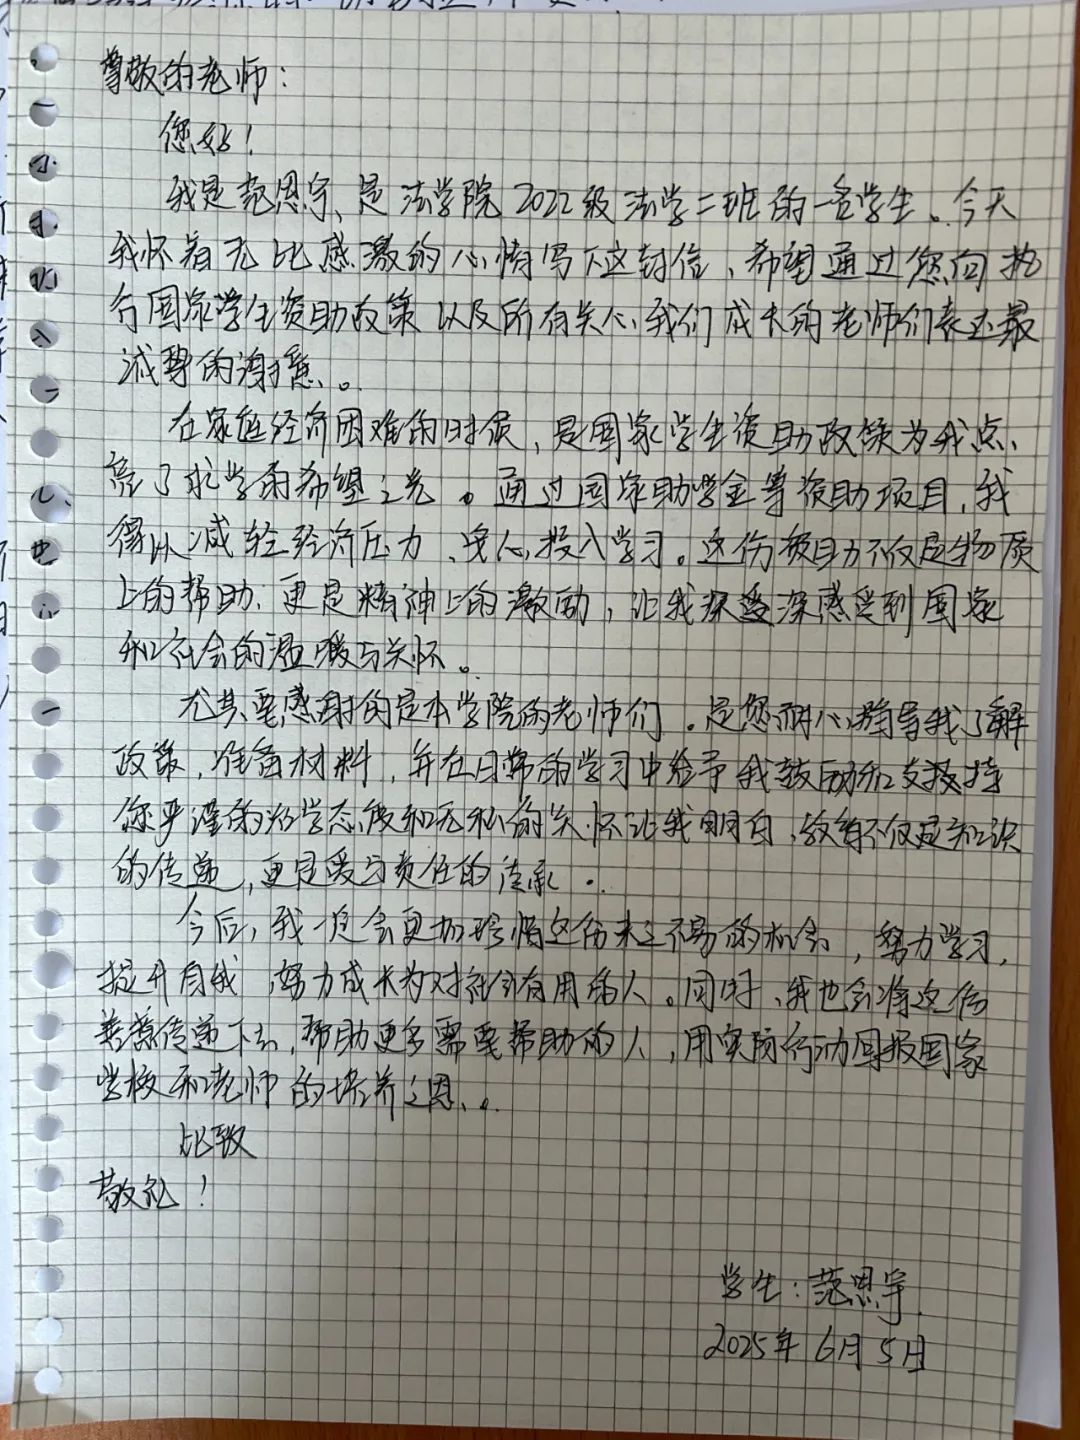 尊敬的老师：
您好！
我是范恩宇，是法学院2022级法学二班的一名学生。今天
我怀着无比感激的心情写下这封信，希望通过您向执
行国家学生资助政策以及所有关心我们成长的老师们表达最
诚挚的谢意。
在家庭经济困难的时候，是国家学生资助政策为我点
亮了求学的希望之光。通过国家助学金等资助项目，我
得以减轻经济压力，安心投入学习。这份援助不仅是物质
上的帮助，更是精神上的激励，让我深深感受到国家
和社会的温暖与关怀。
尤其要感谢的是本学院的老师们。是您耐心指导我了解
政策，准备材料，并在日常的学习中给予我鼓励和支持
您严谨的治学态度和无私的关怀让我明白，教育不仅是知识
的传递，更是爱与责任的传承。
今后，我一定会更加珍惜这份来之不易的机会，努力学习，
提升自我，努力成长为对社会有用的人。同时，我也会将这份
善意传递下去，帮助更多需要帮助的人，用实际行动回报国家
学校和老师的培养之恩。
此致
敬礼！
学生：范恩宇
2025年6月5日